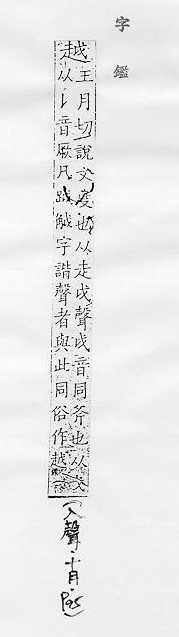 字鑑
越王月切說文度也从走戉聲戉音同斧也从戈
从𠄌音厥凡字諧聲者與此同俗作
(入聲·十月·P95)